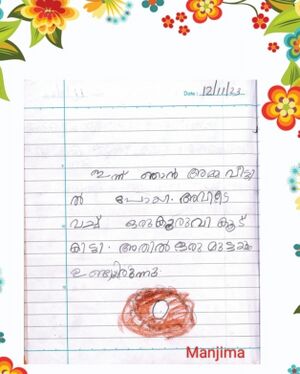 Date: 12/11/23
ഇന്ന് ഞാൻ അമ്മ വീട്ടി
ൽ പോയി. അവിടെ
വച്ച് ഒരു കുരുവി കൂട്
കിട്ടി. അതിൽ ഒരു മുട്ടയും
ഉണ്ടായിരുന്നു.
Manjima